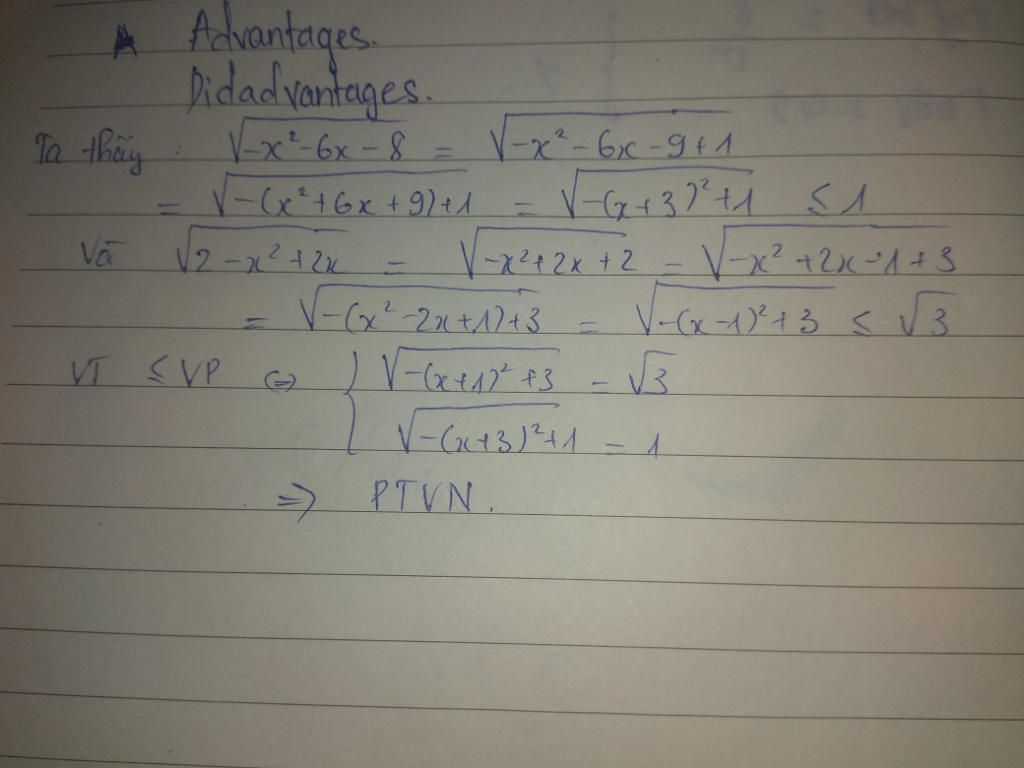 Advantages.
Didadvantages.
Ta thấy : √(-x²-6x-8) = √(-x²-6x-9+1)
= √(-(x²+6x+9)+1) = √(-(x+3)²+1) ≤ 1
Và √(2-x²+2x) = √(-x²+2x+2) = √(-x²+2x-1+3)
= √(-(x²-2x+1)+3) = √(-(x-1)²+3) ≤ √3
VT ≤ VP ⇔ { √(-(x+1)²+3) = √3
√(-(x+3)²+1) = 1
⇒ PTVN.